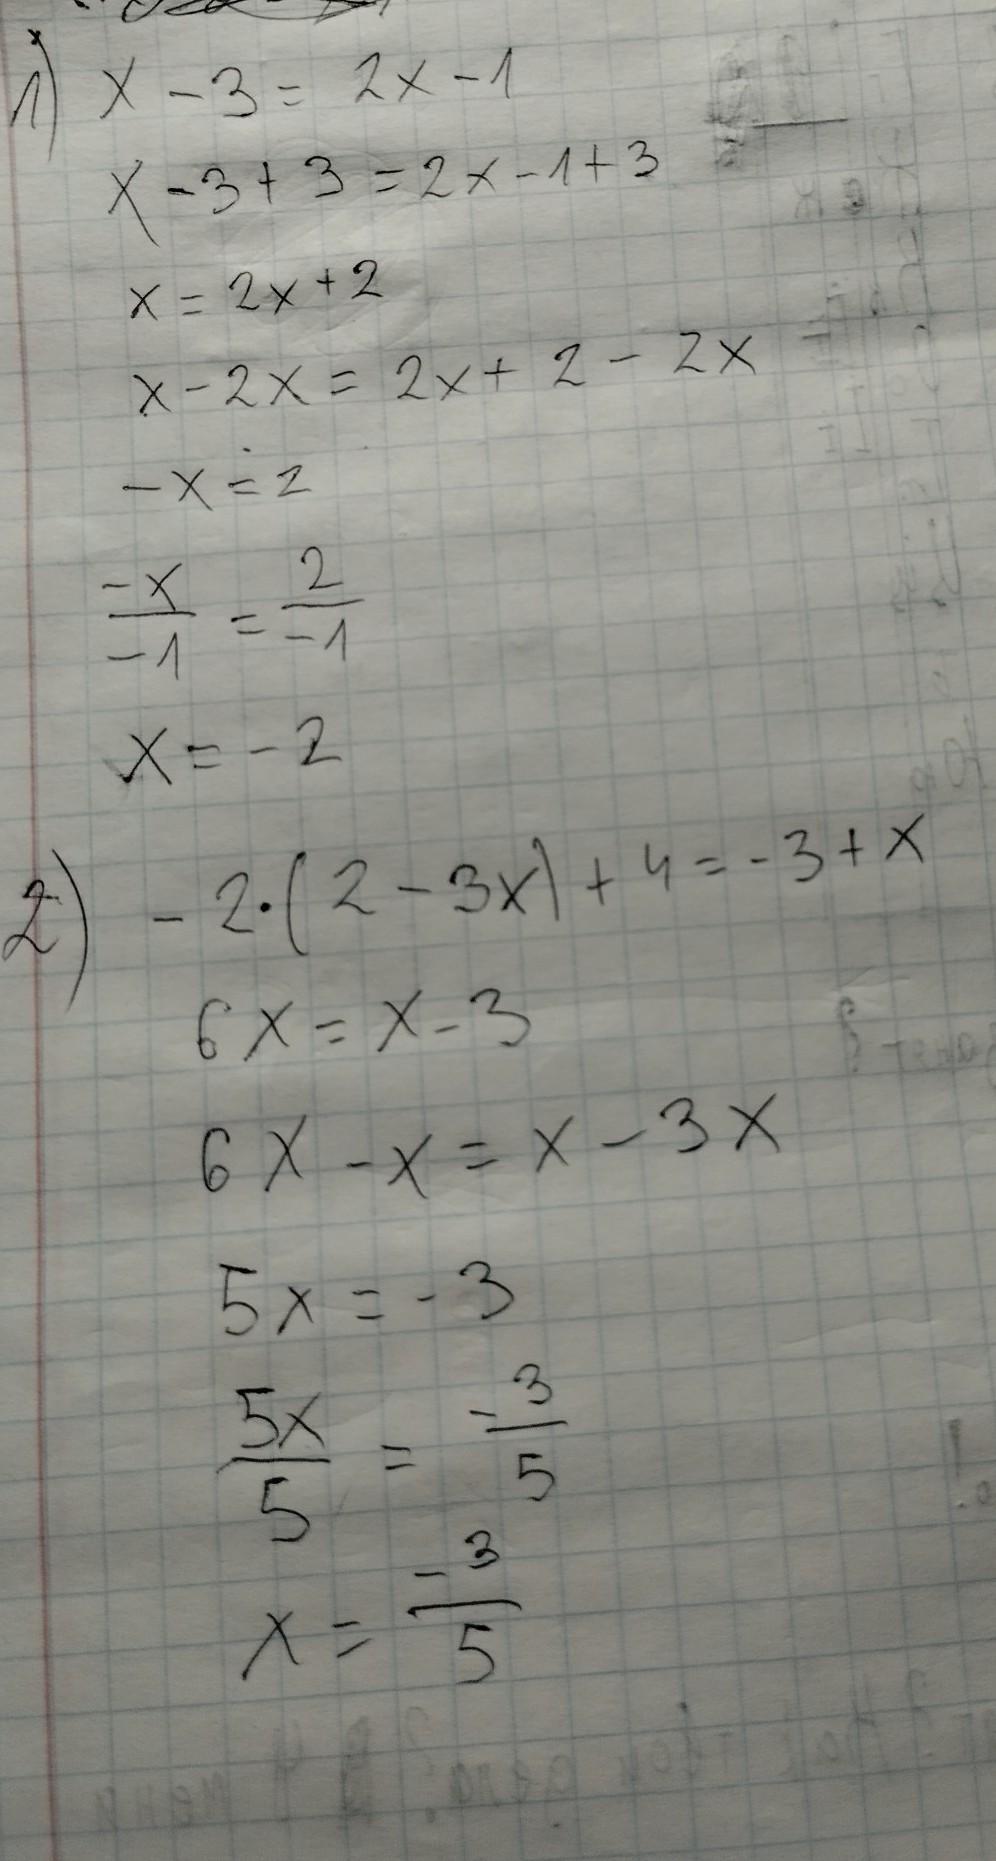 1) x - 3 = 2x - 1
x - 3 + 3 = 2x - 1 + 3
x = 2x + 2
x - 2x = 2x + 2 - 2x
-x = 2
-x/-1 = 2/-1
x = -2
2) -2·(2 - 3x) + 4 = -3 + x
6x = x - 3
6x - x = x - 3x
5x = -3
5x/5 = -3/5
x = -3/5